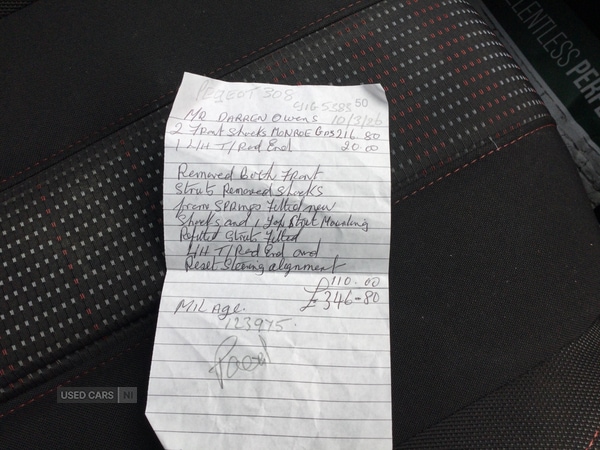 RELENTLESS PERF
PEGEOT 308
50
MR DARREN Owens 10/3/26
2 Front Shocks MONROE GAS 216.80
1 L/H T/Rod End 20.00
Removed Both Front
Struts Removed Shocks
from SPRINGS fitted new
Shocks and 1 Top Strut Mounting
Refitted Struts fitted
L/H T/Rod End and
Reset Steering alignment
£110.00
£346-80
MILAGE.
123975.
Paid
USED CARS NI